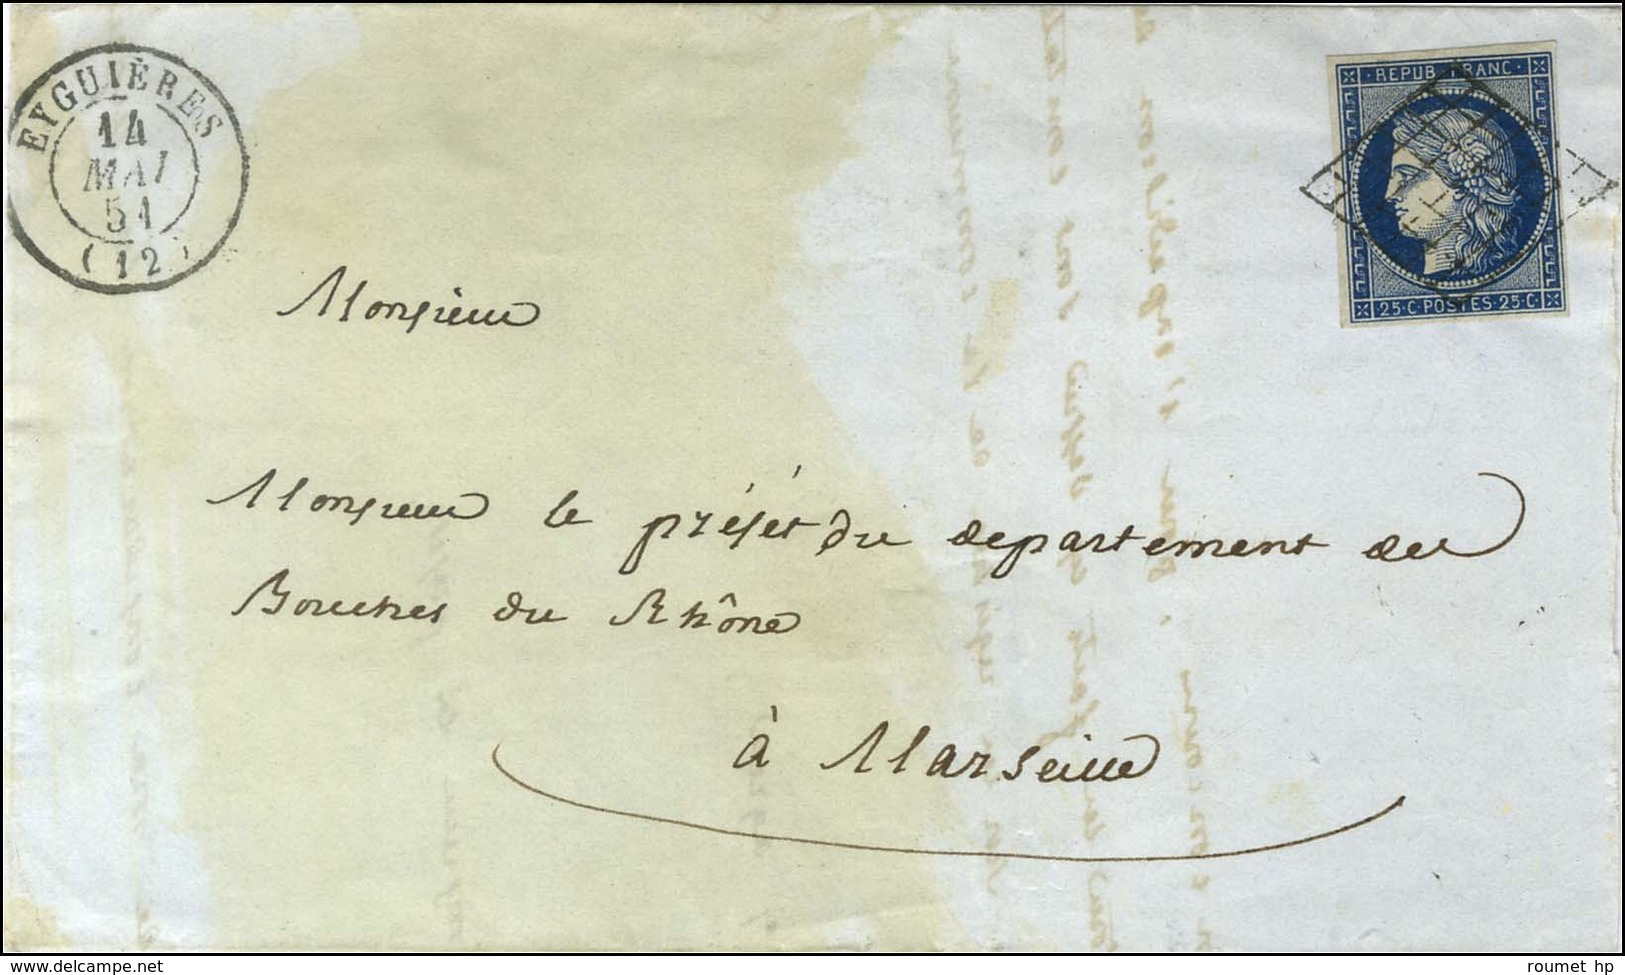 EYGUIÈRES
14
MAI
51
(12)
REPUB FRANC
25·C·POSTES 25·C·
Monsieur
Monsieur le préfet du departement des
Bouches du Rhône
à Marseille
www.delcampe.net
roumet hp